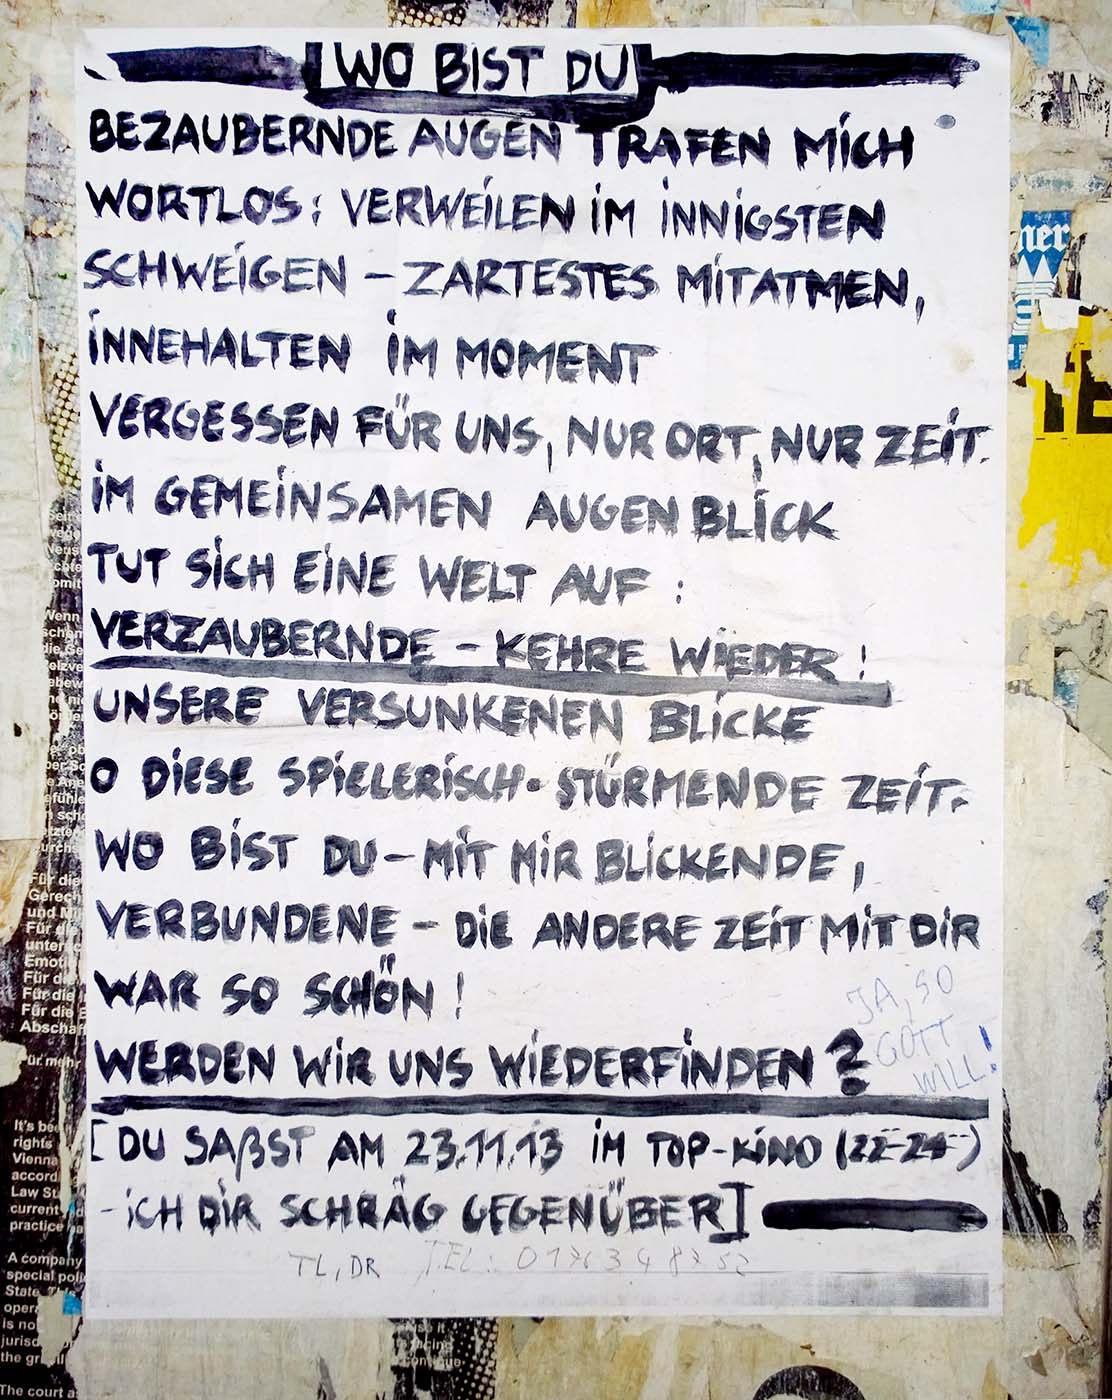 WO BIST DU
BEZAUBERNDE AUGEN TRAFEN MICH
WORTLOS: VERWEILEN IM INNIGSTEN
SCHWEIGEN – ZARTESTES MITATMEN,
INNEHALTEN IM MOMENT
VERGESSEN FÜR UNS, NUR ORT, NUR ZEIT.
IM GEMEINSAMEN AUGENBLICK
TUT SICH EINE WELT AUF:
VERZAUBERNDE – KEHRE WIEDER!
UNSERE VERSUNKENEN BLICKE
O DIESE SPIELERISCH-STÜRMENDE ZEIT.
WO BIST DU – MIT MIR BLICKENDE,
VERBUNDENE – DIE ANDERE ZEIT MIT DIR
WAR SO SCHÖN!
WERDEN WIR UNS WIEDERFINDEN?
JA, SO
GOTT
WILL!
[DU SAßST AM 23.11.13 IM TOP-KINO (22–24)
– ICH DIR SCHRÄG GEGENÜBER]
TL, DR TEL:
It's
rights
Vienna
Law
current
practice
A company
special
State
is no
the court a